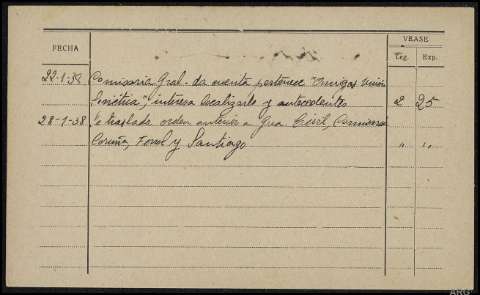 FECHA
VEASE
Leg. Exp.
22-1-38 Comisaria Gral. da cuenta pertenece "Amigos Unión
Soviética", interesa localizarle y antecedentes 2 25
28-1-38 Se traslada orden anterior a Gua Civil, Comisaria
Coruña, Ferrol y Santiago " "
ARG